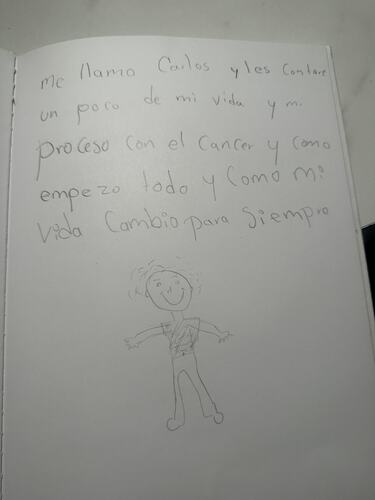 Me llamo Carlos y les contare
un poco de mi vida y mi
proceso con el cancer y como
empezo todo y como mi
vida cambio para siempre